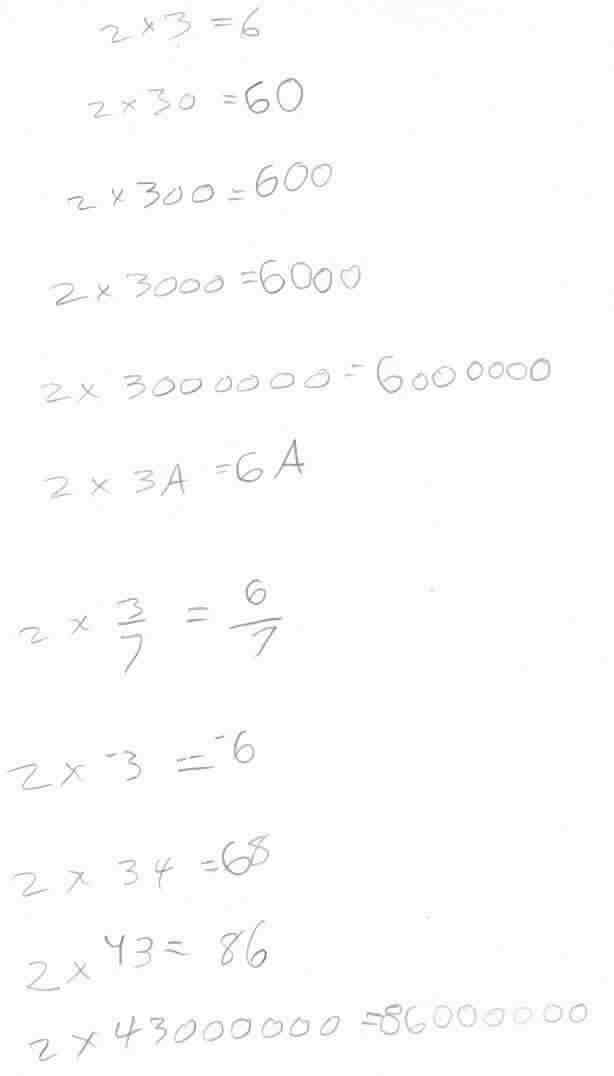 2 × 3 = 6
2 × 30 = 60
2 × 300 = 600
2 × 3000 = 6000
2 × 3000000 = 6000000
2 × 3A = 6A
2 × 3/7 = 6/7
2 × ⁻3 = ⁻6
2 × 34 = 68
2 × 43 = 86
2 × 43000000 = 86000000